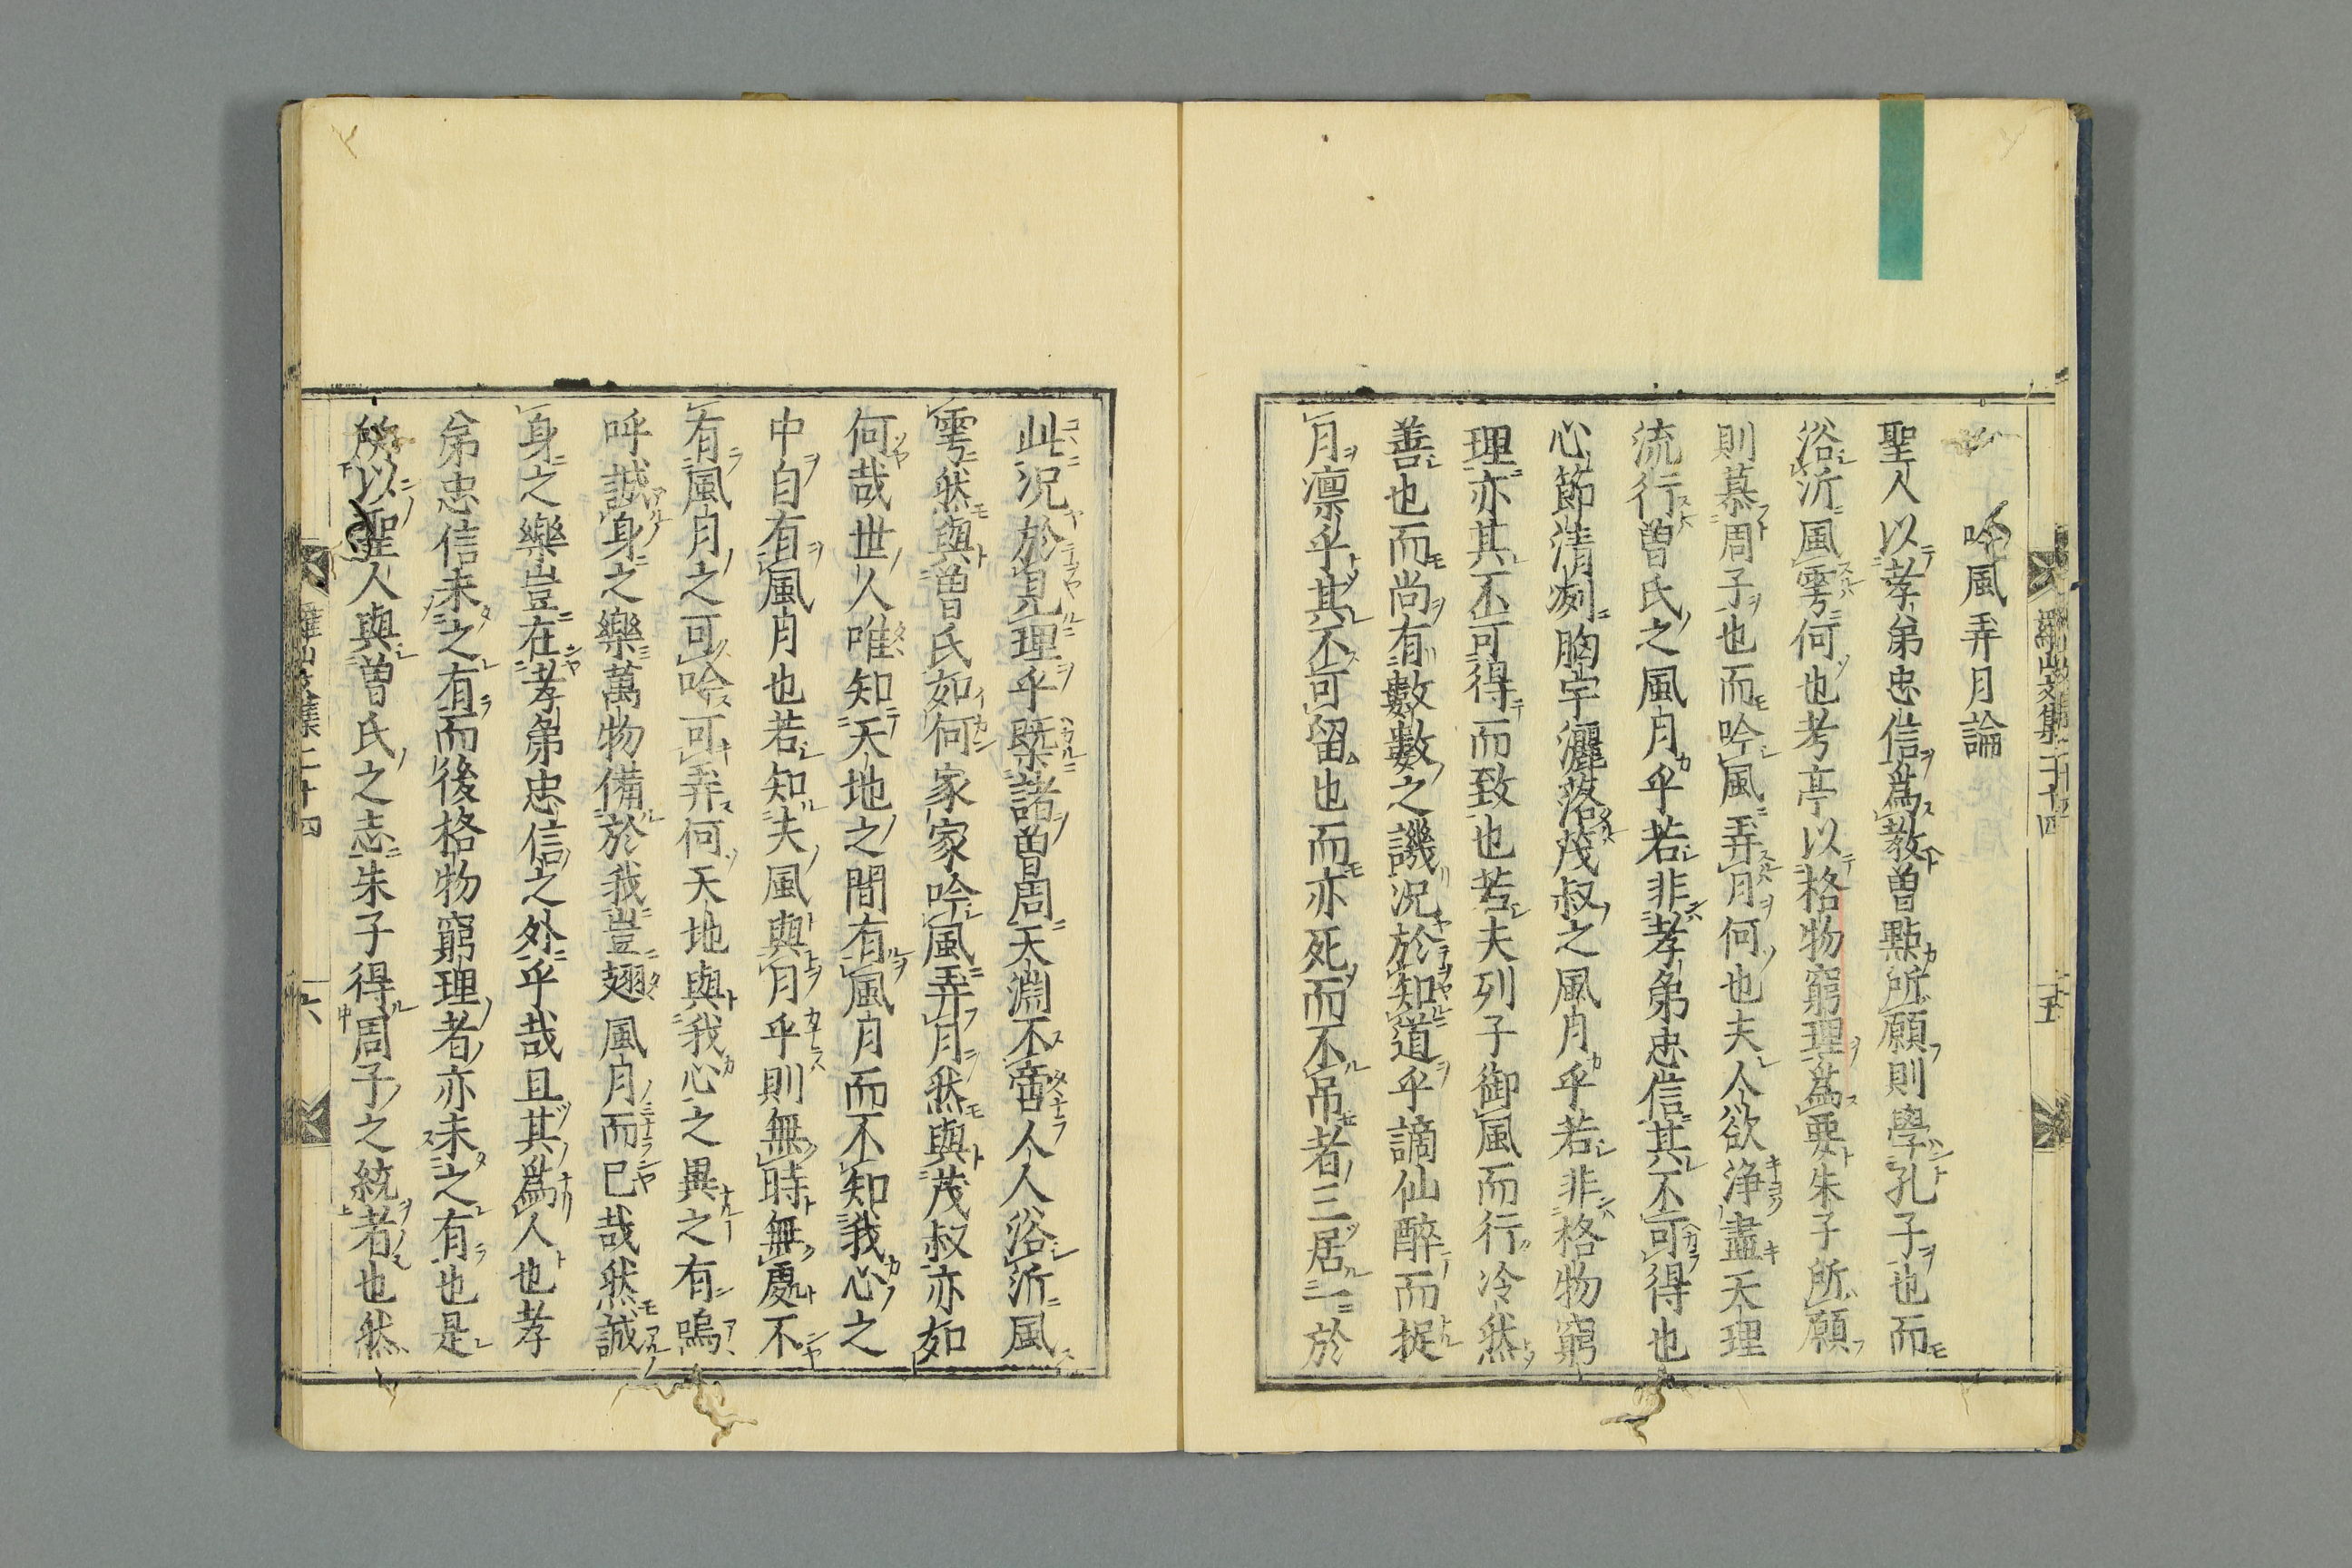 吟風弄月論
聖人以孝弟忠信爲教曽點所願則學孔子也而
浴沂風雩何也考亭以格物窮理爲要朱子所願
則慕周子也而吟風弄月何也夫人欲浄盡天理
流行曽氏之風月乎若非孝弟忠信其不可得也
心節清剡胸宇灑落茂叔之風月乎若非格物窮
理亦其不可得而致也若夫列子御風而行冷然
善也而尚有數數之譏況於知道乎謫仙醉而捉
月凛乎其不可留也而亦死而不吊者三居一於
此況於見理乎槩諸曽周天淵不啻人人浴沂風
雩然與曽氏如何家家吟風弄月然與茂叔亦如
何哉世人唯知天地之間有風月而不知我心之
中自有風月也若知夫風與月乎則無時無處不
有風月之可吟可弄何天地與我心之異之有嗚
呼誠身之樂萬物備於我豈翅風月而已哉然誠
身之樂豈在孝弟忠信之外乎哉且其爲人也孝
弟忠信未之有而後格物窮理者亦未之有也是
所以聖人與曽氏之志朱子得周子之統者也然
羅山文集二十四
十五
羅山文集二十四
十六